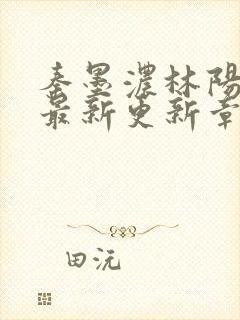 秦墨濃林陽
最新更新章
田沅